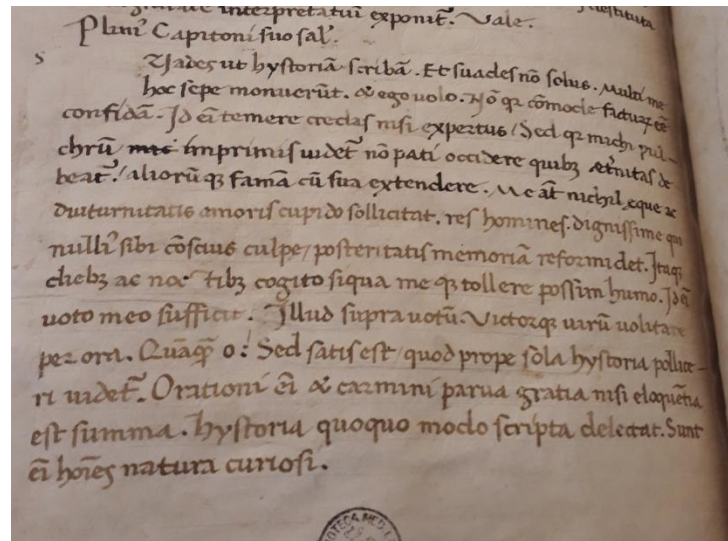 interpretatuī exponit̄. Vale.
restituta
Plini⁹ Capitoni suo sal̄.
s
Uades ut hystoriā scribā. Et suades nō solus. Multi me
hoc sepe monuerūt. & ego uolo. Nō qꝛ cōmode facturꝫ eē
confidā. Id ei temere credas nisi expertus / Sed qꝛ michi pul-
chrū imprimis uidet̄ nō pati occidere quibꝫ et̄nitas de
beat̄. / aliorū qꝫ famā cū sua extendere. Me at̄ nichil eque ac
diuturnitatis amoris cupido sollicitat. res homines. dignissime qui
nulli⁹ sibi cōscius culpe / posteritatis memoriā reformidet. Itaqꝫ
diebꝫ ac noc tibꝫ cogito siqua me qꝫ tollere possim humo. Id ei
uoto meo sufficit. Illud supra uotū. Victorqꝫ uirū uolitare
per ora. Quāqꝫ̄ o: Sed satis est / quod prope sola hystoria pollice-
ri uidet̄. Orationi ei & carmini parua gratia nisi eloquētia
est summa. hystoria quoquo modo scripta delectat. Sunt
ei hoīes natura curiosi.